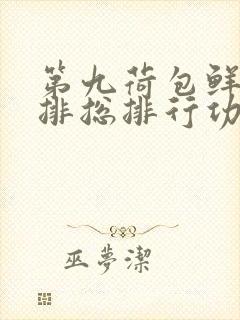 第九荷包鲜
排总排行功
巫夢潔